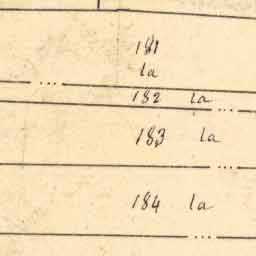 181
la
182 la
183 la
184 la